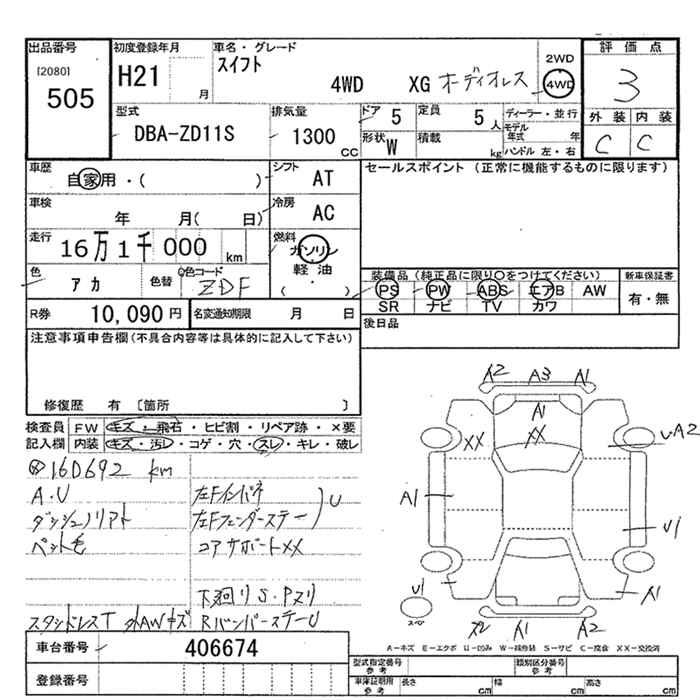 出品番号
[2080]
505
初度登録年月
H21
月
車名・グレード
スイフト
4WD XG オーディオレス
2WD
4WD
評価点
3
外装 内装
C C
型式
DBA-ZD11S
排気量
1300
CC
ドア 5
定員 5 人
形状 W
積載 kg
ディーラー・並行
モデル年式 年
ハンドル 左・右
車歴
自家用・( )
シフト AT
車検
年 月( 日)
冷房 AC
走行
16万1千000 km
燃料
ガソリン
軽油
( ・ )
色
アカ
色替
色コード
ZDF
R券 10,090円
名変通知期限 月 日
セールスポイント (正常に機能するものに限ります)
装備品 (純正品に限り○をつけてください)
PS PW ABS エアB AW
SR ナビ TV カワ
新車保証書
有・無
後日品
注意事項申告欄(不具合内容等は具体的に記入して下さい)
修復歴 有 〔箇所 〕
検査員記入欄
FW キズ・飛石・ヒビ割・リペア跡・×要
内装 キズ・汚レ・コゲ・穴・スレ・キレ・破レ
160692 km
A.U
ダッシュノリアト
ペット毛
スタッドレスT 外AWキズ
左Fインパネ
左Fフェンダーステー
U
コアサポートXX
下廻りS.Pヌリ
RバンパーステーU
A2 A3 A1
A1
XX XX
UA2
A1
U1
U1
A1
A1 A2
A-キズ E-エクボ U-凹ミ W-補修跡 S-サビ C-腐食 XX-交換済
車台番号 406674
登録番号
型式指定番号
参考
類別区分番号
参考
車庫証明用
参考
長さ cm 幅 cm 高さ cm